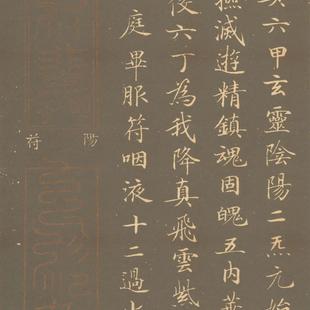 六甲玄靈陰陽二炁元始
滅遊精鎮魂固魄五内華
六丁為我降真飛雲紫
庭畢服符咽液十二過
陽符